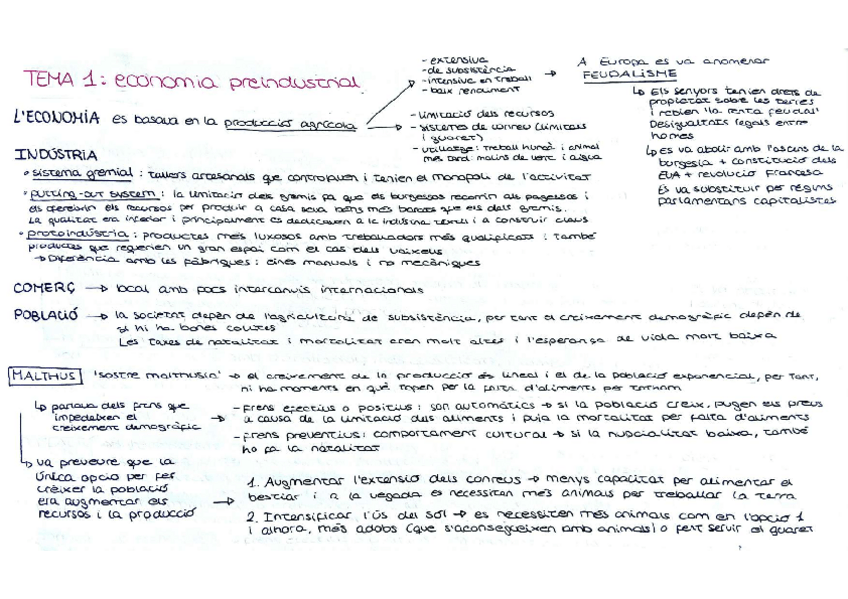 TEMA 1: economia preindustrial
L'ECONOMIA es basava en la producció agrícola
- extensiva
- de subsistència
- intensiva en treball
- baix rendiment
→ A Europa es va anomenar
FEUDALISME
↳ Els senyors tenien drets de
propietat sobre les terres
i rebien 'la renta feudal'
Desigualtats legals entre
homes
↳ Es va abolir amb l'ascens de la
burgesia + constitució dels
EUA + revolució francesa
Es va substituir per règims
parlamentaris capitalistes
- limitació dels recursos
- sistemes de conreu (limitats
i guaret)
- utillatge: treball humà i animal
més tard: molins de vent i aigua
INDÚSTRIA
• sistema gremial: tallers artesanals que controlaven i tenien el monopoli de l'activitat
• putting-out system: la limitació dels gremis fa que els burgesos recorrin als pagesos i
els ofereixin els recursos per produir a casa seva béns més barats que els dels gremis.
La qualitat era inferior i principalment es dedicaven a la indústria tèxtil i a construir claus
• protoindústria: productes més luxosos amb treballadors més qualificats i també
productes que requerien un gran espai com el cas dels vaixells
→ Diferència amb les fàbriques: eines manuals i no mecàniques
COMERÇ → local amb pocs intercanvis internacionals
POBLACIÓ → la societat depèn de l'agricultura de subsistència, per tant el creixement demogràfic depèn de
si hi ha bones collites
Les taxes de natalitat i mortalitat eren molt altes i l'esperança de vida molt baixa
MALTHUS 'sostre malthusià' → el creixement de la producció és lineal i el de la població exponencial, per tant,
hi ha moments en què topen per la falta d'aliments per tothom
↳ parlava dels frens que
impedeixen el
creixement demogràfic
→ - frens efectius o positius: són automàtics → si la població creix, pugen els preus
a causa de la limitació dels aliments i puja la mortalitat per falta d'aliments
- frens preventius: comportament cultural → si la nupcialitat baixa, també
ho fa la natalitat
↳ va preveure que la
única opció per fer
créixer la població
era augmentar els
recursos i la producció
→ 1. Augmentar l'extensió dels conreus → menys capacitat per alimentar el
bestiar i a la vegada es necessiten més animals per treballar la terra
2. Intensificar l'ús del sol → es necessiten més animals com en l'opció 1
i alhora, més adobs (que s'aconsegueixen amb animals) o fent servir el guaret